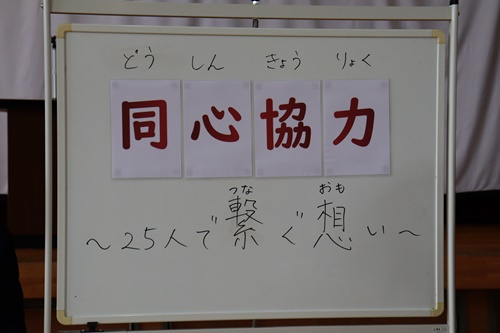 どう しん きょう りょく
同心協力
つな おも
～25人で繋ぐ想い～